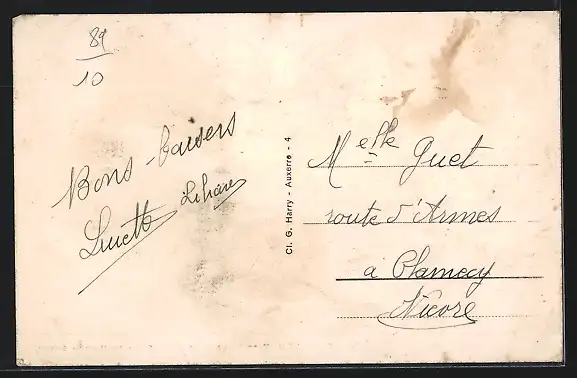 89
10
Bons baisers
Lucette
Cl. G. Harry - Auxerre - 4
Melle Guet
route d'Armes
a Clamecy
Nièvre